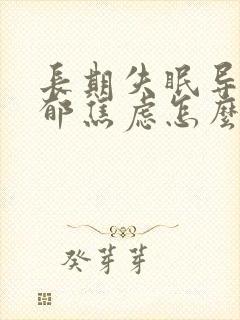 長期失眠导
郁焦虑怎麼
癸芽芽